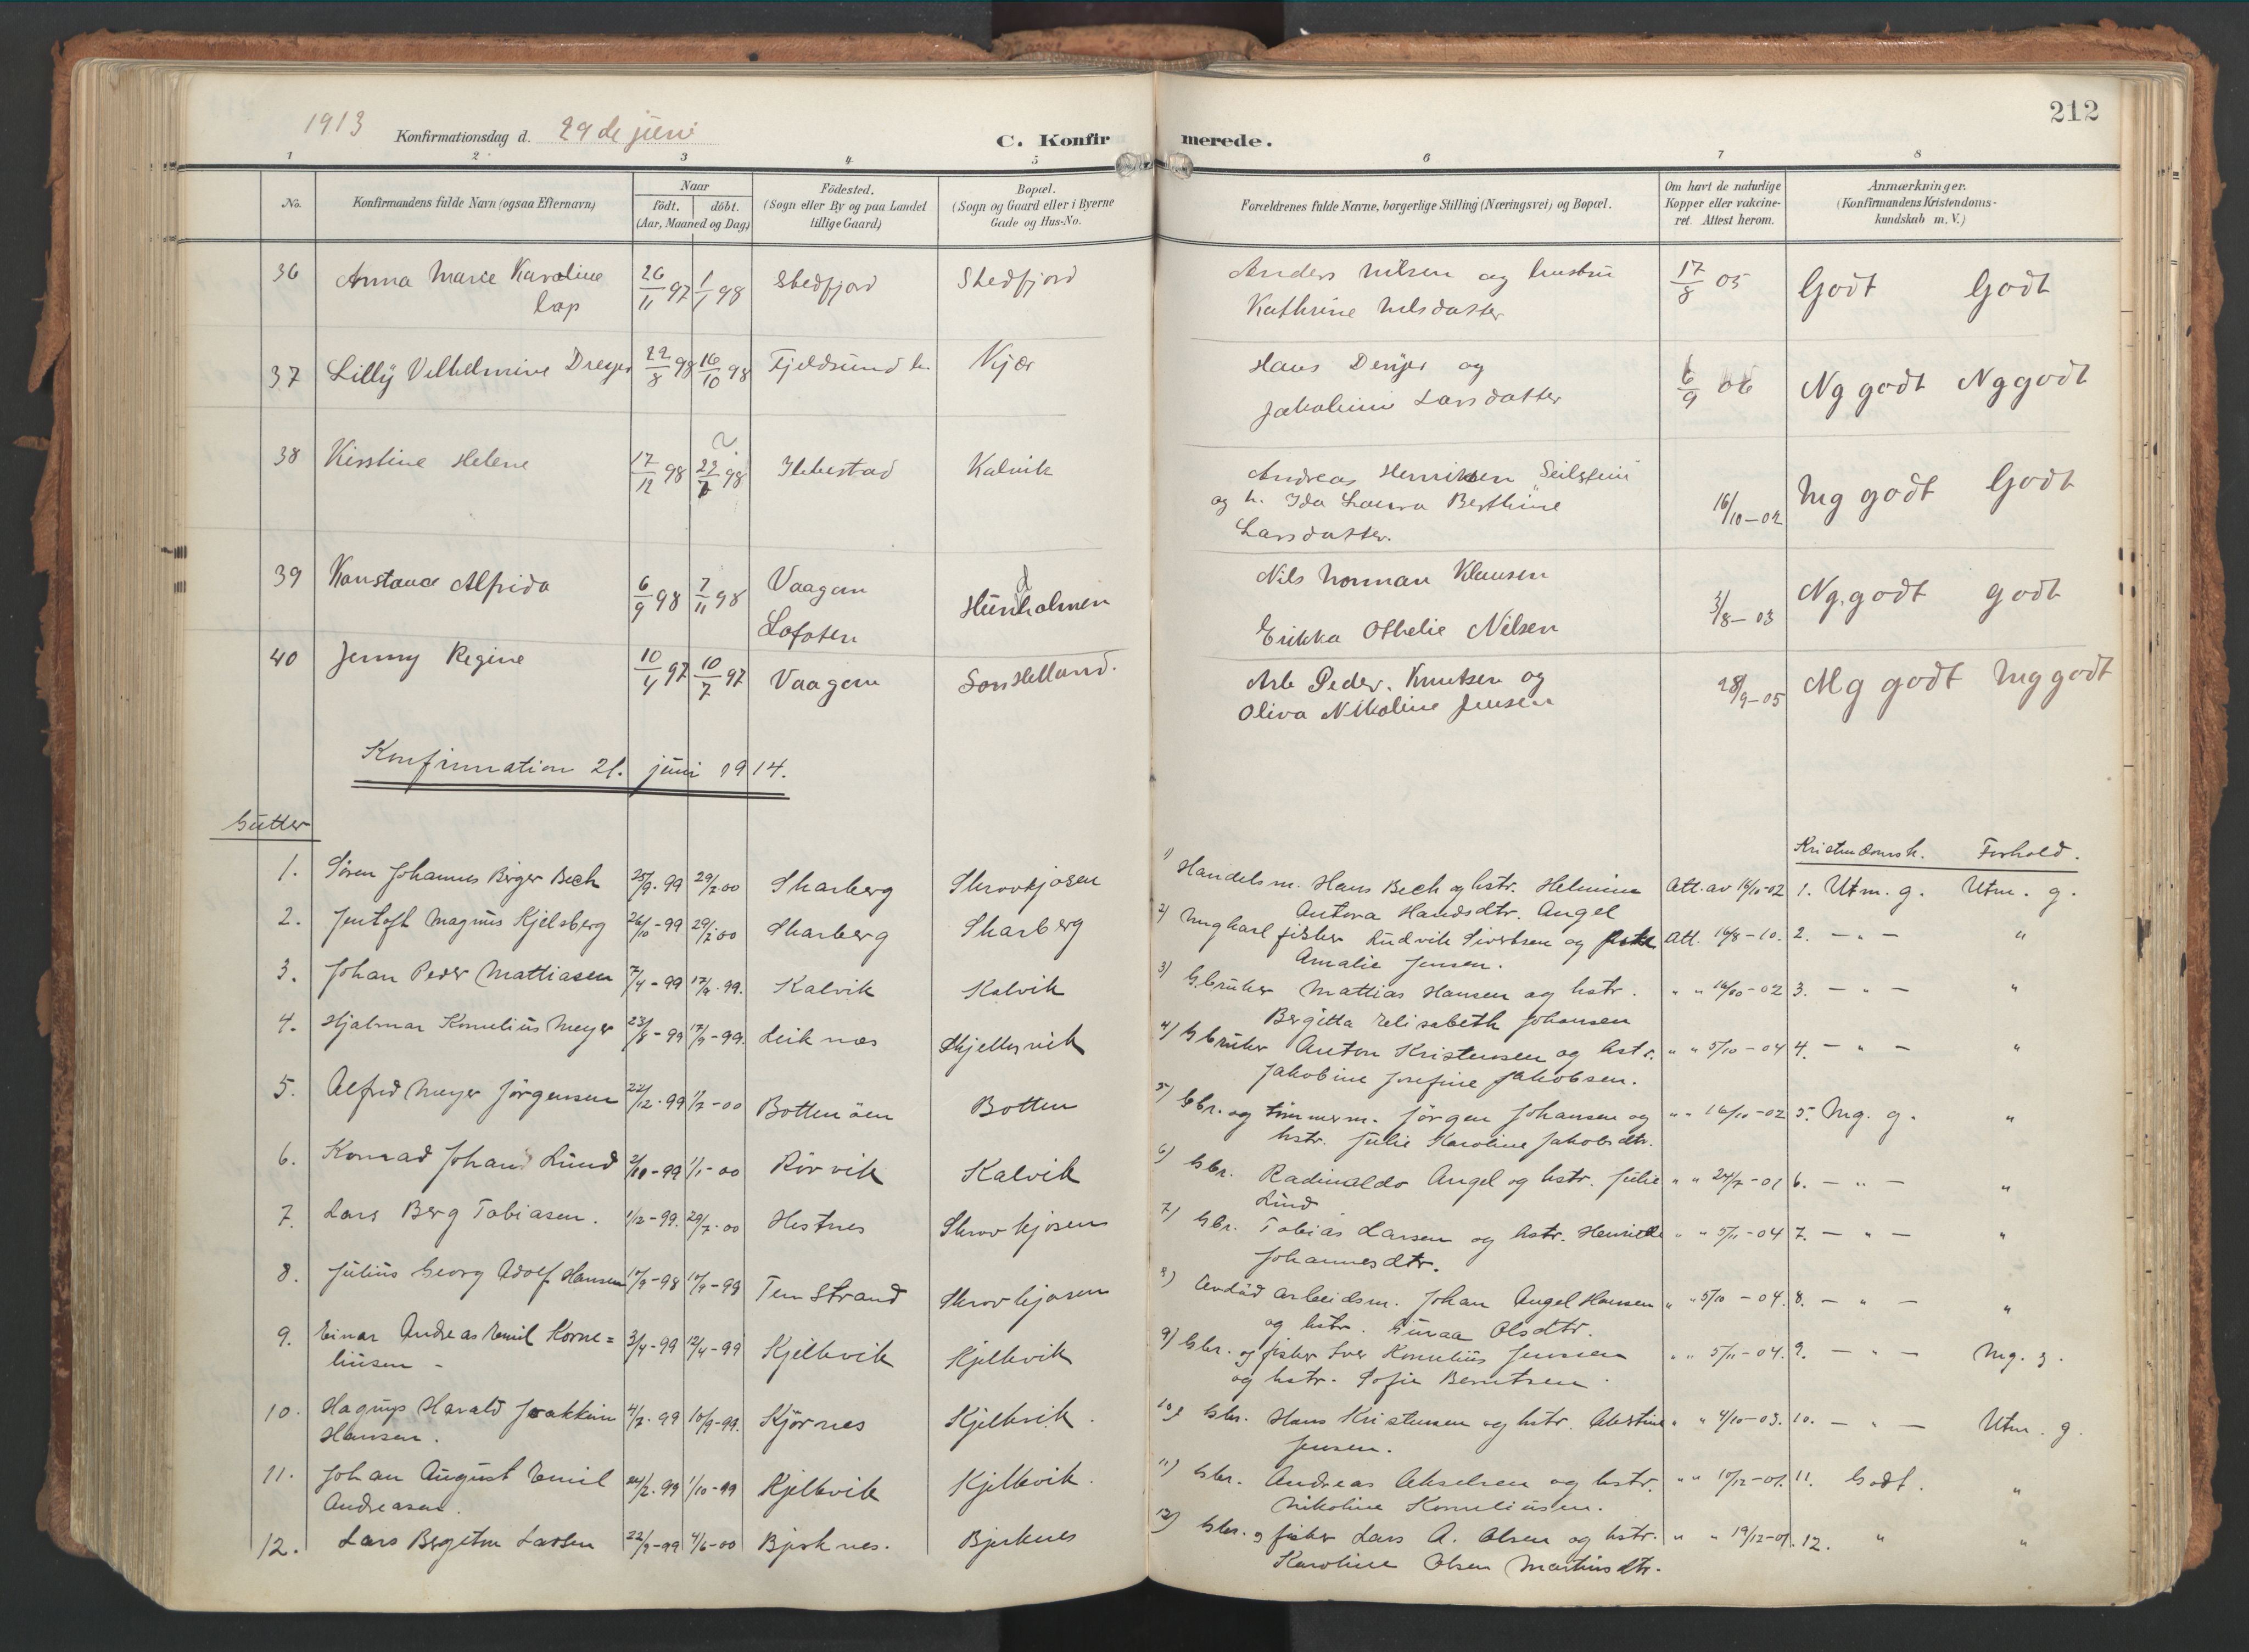 212
1913 Konfirmationsdag d. 29 de juni
C. Konfirmerede.
1 2 3 4 5 6 7 8
No.
Konfirmandens fulde Navn (ogsaa Efternavn)
Naar
födt. döbt.
(Aar, Maaned og Dag)
Födested.
(Sogn eller By og paa Landet
tillige Gaard)
Bopæl.
(Sogn og Gaard eller i Byerne
Gade og Hus-No.
Forældrenes fulde Navne, borgerlige Stilling (Næringsvei) og Bopæl.
Om havt de naturlige
Kopper eller vakcine-
ret. Attest herom.
Anmærkninger.
(Konfirmandens Kristendoms-
kundskab m. V.)
36 Anna Marie Karoline 26/11 97 1/1 98 Skedfjord Skedfjord Anders Nilsen og hustru 17/8 05 Godt Godt
Lap Kathrine Nilsdatter
37 Lilly Vilhelmine Dreyer 22/8 98 16/10 98 Fjeldsund Kjær Hans Dreyer og 6/9 06 Ng godt Ng godt
Larsdatter
38 Kirstine Helene 17/12 98 98 Ibbestad Kalvik Andreas Henriksen 16/10-02 Mg godt Godt
og h. Ida Laura Berthine
Larsdatter.
39 Konstance Alfrida 6/9 98 7/11 98 Vaagan Nils Norman Klausen 3/8-03 Ng. godt godt
Lofoten Erikka Othelie Nilsen
40 Jenny Regine 10/4 97 10/7 97 Vaagan Sør Helland. Arb Peder. Knutsen og 28/9-05 Mg godt Mg godt
Oliva Nikoline Jensen
Konfirmation 21. juni 1914.
Gutter
Kristendomsk. Forhold.
1. Søren Johannes Birger Bech 25/9-99 29/7 00 Skarberg Skrovkjosen 1) Handelsm. Hans Bech og hstr. Helmine Att. av 16/10-02 1. Utm. g. Utm. g.
Antora Handsdtr. Angel
2. Jentoft Magnus Kjelsberg 26/10-99 29/7 00 Skarberg Skarberg 2) Ungkarl fisker Ludvik Sivertsen og Att. 16/8-10. 2. — " — "
Amalie Jensen.
3. Johan Peder Mattiasen 7/4-99 17/9-99. Kalvik Kalvik 3) G.bruker Mattias Hansen og hstr. " " 16/10-02 3. — " — "
Bergitta Elisabeth Johansen
4. Hjalmar Kornelius Meyer 23/8-99 17/9-99. Leiknes Skjellesvik 4) G.bruker Anton Kristensen og hstr. " " 5/10-04 4. — " — "
Jakobine Josefine Jakobsen.
5. Alfred Meyer Jörgensen 22/12-99 1/7-00 Botten öen Botten 5) Gbr. og tømmerm. Jörgen Johansen og " " 16/10-02 5. Mg. g. "
hstr. Julie Karoline Jakobsdtr.
6. Konrad Johan Lund 2/10-99 1/1-00 Rörvik Kalvik 6) Gbr. Radinaldo Angel og hstr. Julie " " 24/7-01 6. — " — "
Lund
7. Lars Berg Tobiasen. 1/12-99. 29/7-00 Hestnes Skrovkjosen 7) Gbr. Tobias Larsen og hstr. Henriette " " 5/11-04 7. — " — "
Johannesdtr.
8. Julius Georg Adolf Hansen 98 99 Ten Strand Skrovkjosen 8) Avdöd arbeidsm. Johan Angel Hansen " " 5/10-04. 8. — " — "
og hstr. Olsdtr.
9. Einar Andreas Emil Korne= 3/4-99 12/4-99 Kjelkvik Kjelkvik 9) Gbr. og fisker Kornelius Jensen " " 5/11-04. 9. — " — Mg. g.
liusen - og hstr. Sofie Berntsen
10. Hagrup Harald Joakkim 4/7-99 10/9-99. Kjörnes Kjelkvik. 10) Gbr. Hans Kristensen og hstr. " " 4/10-03. 10. — " — Utm. g.
Hansen. Jensen.
11. Johan August Emil 24/2-99 1/10-99 Kjelkvik Kjelkvik. 11) Gbr. Andreas Akselsen og hstr. " " 10/12-01. 11. Godt. "
Andreasen. Nikoline Korneliusen.
12. Lars Bergiton Larsen 22/9-99 4/6-00 Bjerknes. Bjerknes 12) Gbr. og fisker Lars A. Olsen og hstr. " " 19/12-01. 12. " "
Karoline Olsen Martinsdtr.